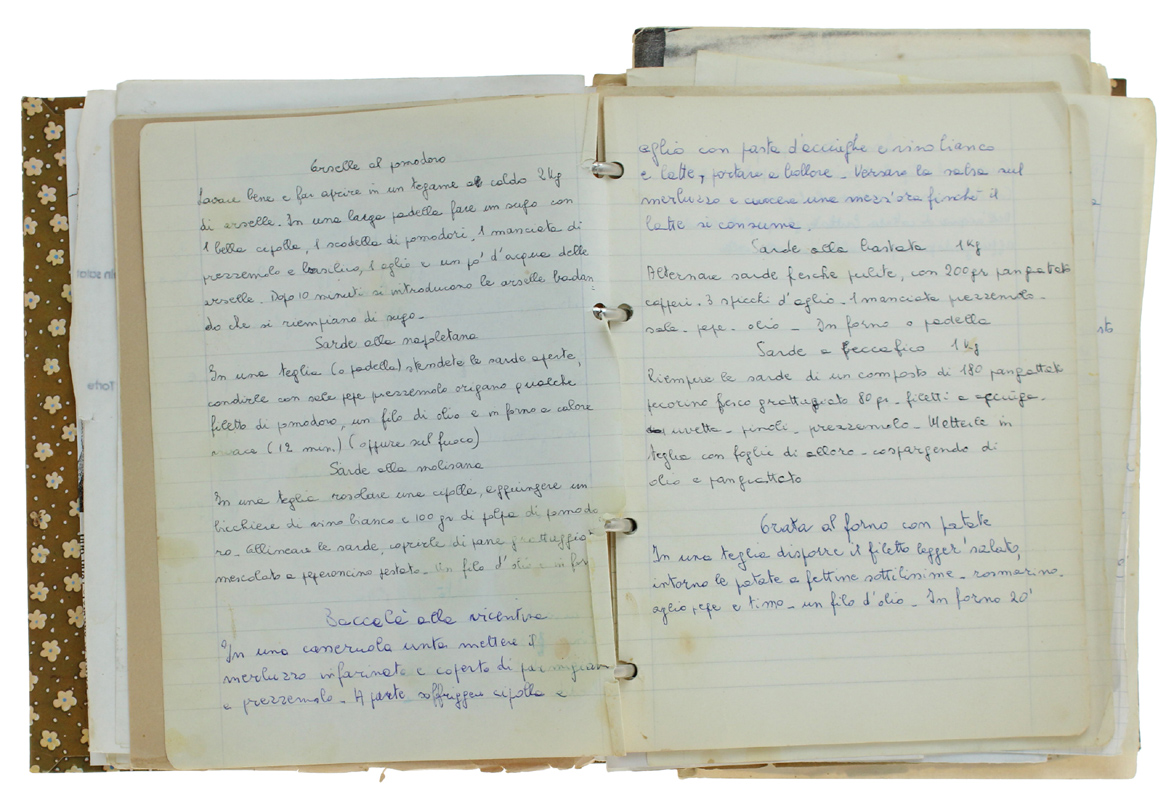 Arselle al pomodoro
Lavare bene e far aprire in un tegame al caldo 2 Kg
di arselle. In una larga padella fare un sugo con
1 bella cipolla, 1 scodella di pomodori, 1 manciata di
prezzemolo e basilico, 1 aglio e un po' d'acqua delle
arselle. Dopo 10 minuti si introducono le arselle badan=
do che si riempiano di sugo -
Sarde alla napoletana
In una teglia (o padella) stendete le sarde aperte,
condirle con sale pepe prezzemolo origano qualche
filetto di pomodoro, un filo di olio e in forno a calore
vivace (12 min.) (oppure sul fuoco)
Sarde alla molisana
In una teglia rosolare una cipolla, aggiungere un
bicchiere di vino bianco e 100 gr di polpa di pomodo
ro - Allineare le sarde, coprirle di pane grattuggiato
mescolato a peperoncino pestato - Un filo d'olio e in for
Baccalà alla vicentina
In una casseruola unta mettere il
merluzzo infarinato e coperto di parmigiano
e prezzemolo - A parte soffriggere cipolla e
aglio con pasta d'acciughe e vino bianco
e latte, portare a bollore - Versare la salsa sul
merluzzo e cuocere una mezz'ora finchè il
latte si consuma.
Sarde alla 1 Kg
Alternare sarde fesche pulite, con 200 gr pangrattato
capperi - 3 spicchi d'aglio - 1 manciata prezzemolo -
sale - pepe - olio - In forno o padella
Sarde a beccafico 1 Kg
Riempire le sarde di un composto di 180 pangrattato
pecorino fesco grattugiato 80 gr - filetti a acciuga -
uvetta - pinoli - prezzemolo - Metterle in
teglia con foglie di alloro - cospargendo di
olio e pangrattato
Orata al forno con patate
In una teglia disporre il filetto legger' salato,
intorno le patate a fettine sottilissime - rosmarino -
aglio, pepe e timo - un filo d'olio - In forno 20'